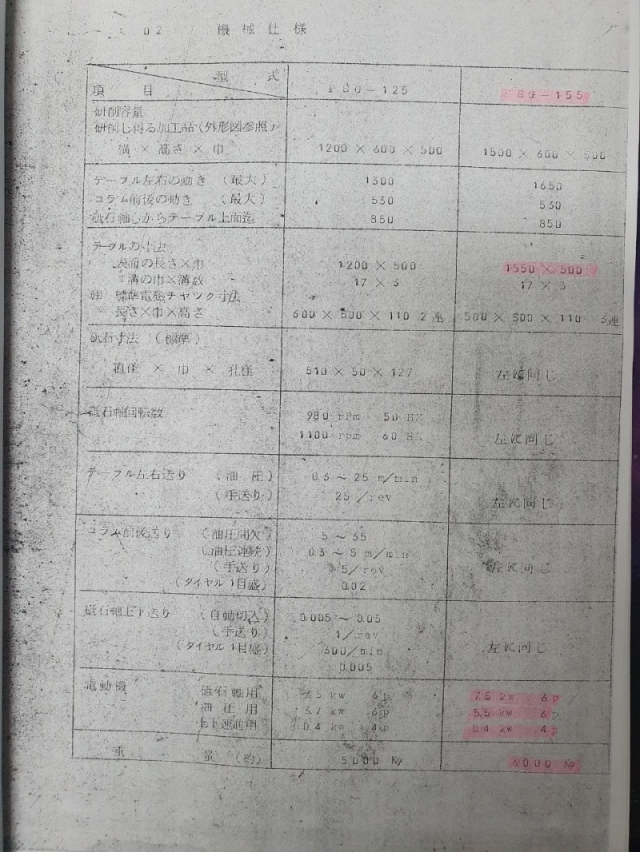 02 機械仕様
型式
項目 PSG-125 PSG-155
研削容量
研削し得る加工品(外形図参照)
横×高さ×巾 1200×600×500 1500×600×500
テーブル左右の動き (最大) 1300 1650
コラム前後の動き (最大) 530 530
砥石軸心からテーブル上面迄 850 850
テーブルの寸法
表面の長さ×巾 1200×500 1550×500
溝の巾×溝数 17×3 17×3
標準電磁チヤック寸法
長さ×巾×高さ 600×500×110 2連 500×500×110 3連
砥石寸法 (標準)
直径×巾×孔径 510×50×127 左に同じ
砥石軸回転数 980 rpm 50 HZ
1100 rpm 60 HZ 左に同じ
テーブル左右送り (油圧) 0.3~25 m/min
(手送り) 25/rev 左に同じ
コラム前後送り (油圧間欠) 3~35
(油圧連続) 0.3~5 m/min
(手送り) 5/rev 左に同じ
(ダイヤル1目盛) 0.02
砥石軸上下送り (自動切込) 0.005~0.05
(手送り) 1/rev
(ダイヤル1目盛) 600/min 左に同じ
0.005
電動機 砥石軸用 7.5 kw 6p 7.5 kw 6p
油圧用 3.7 kw 6p 5.5 kw 6p
上下速進用 0.4 kw 4p 0.4 kw 4p
重量 (約) 5000 Kg 6000 Kg